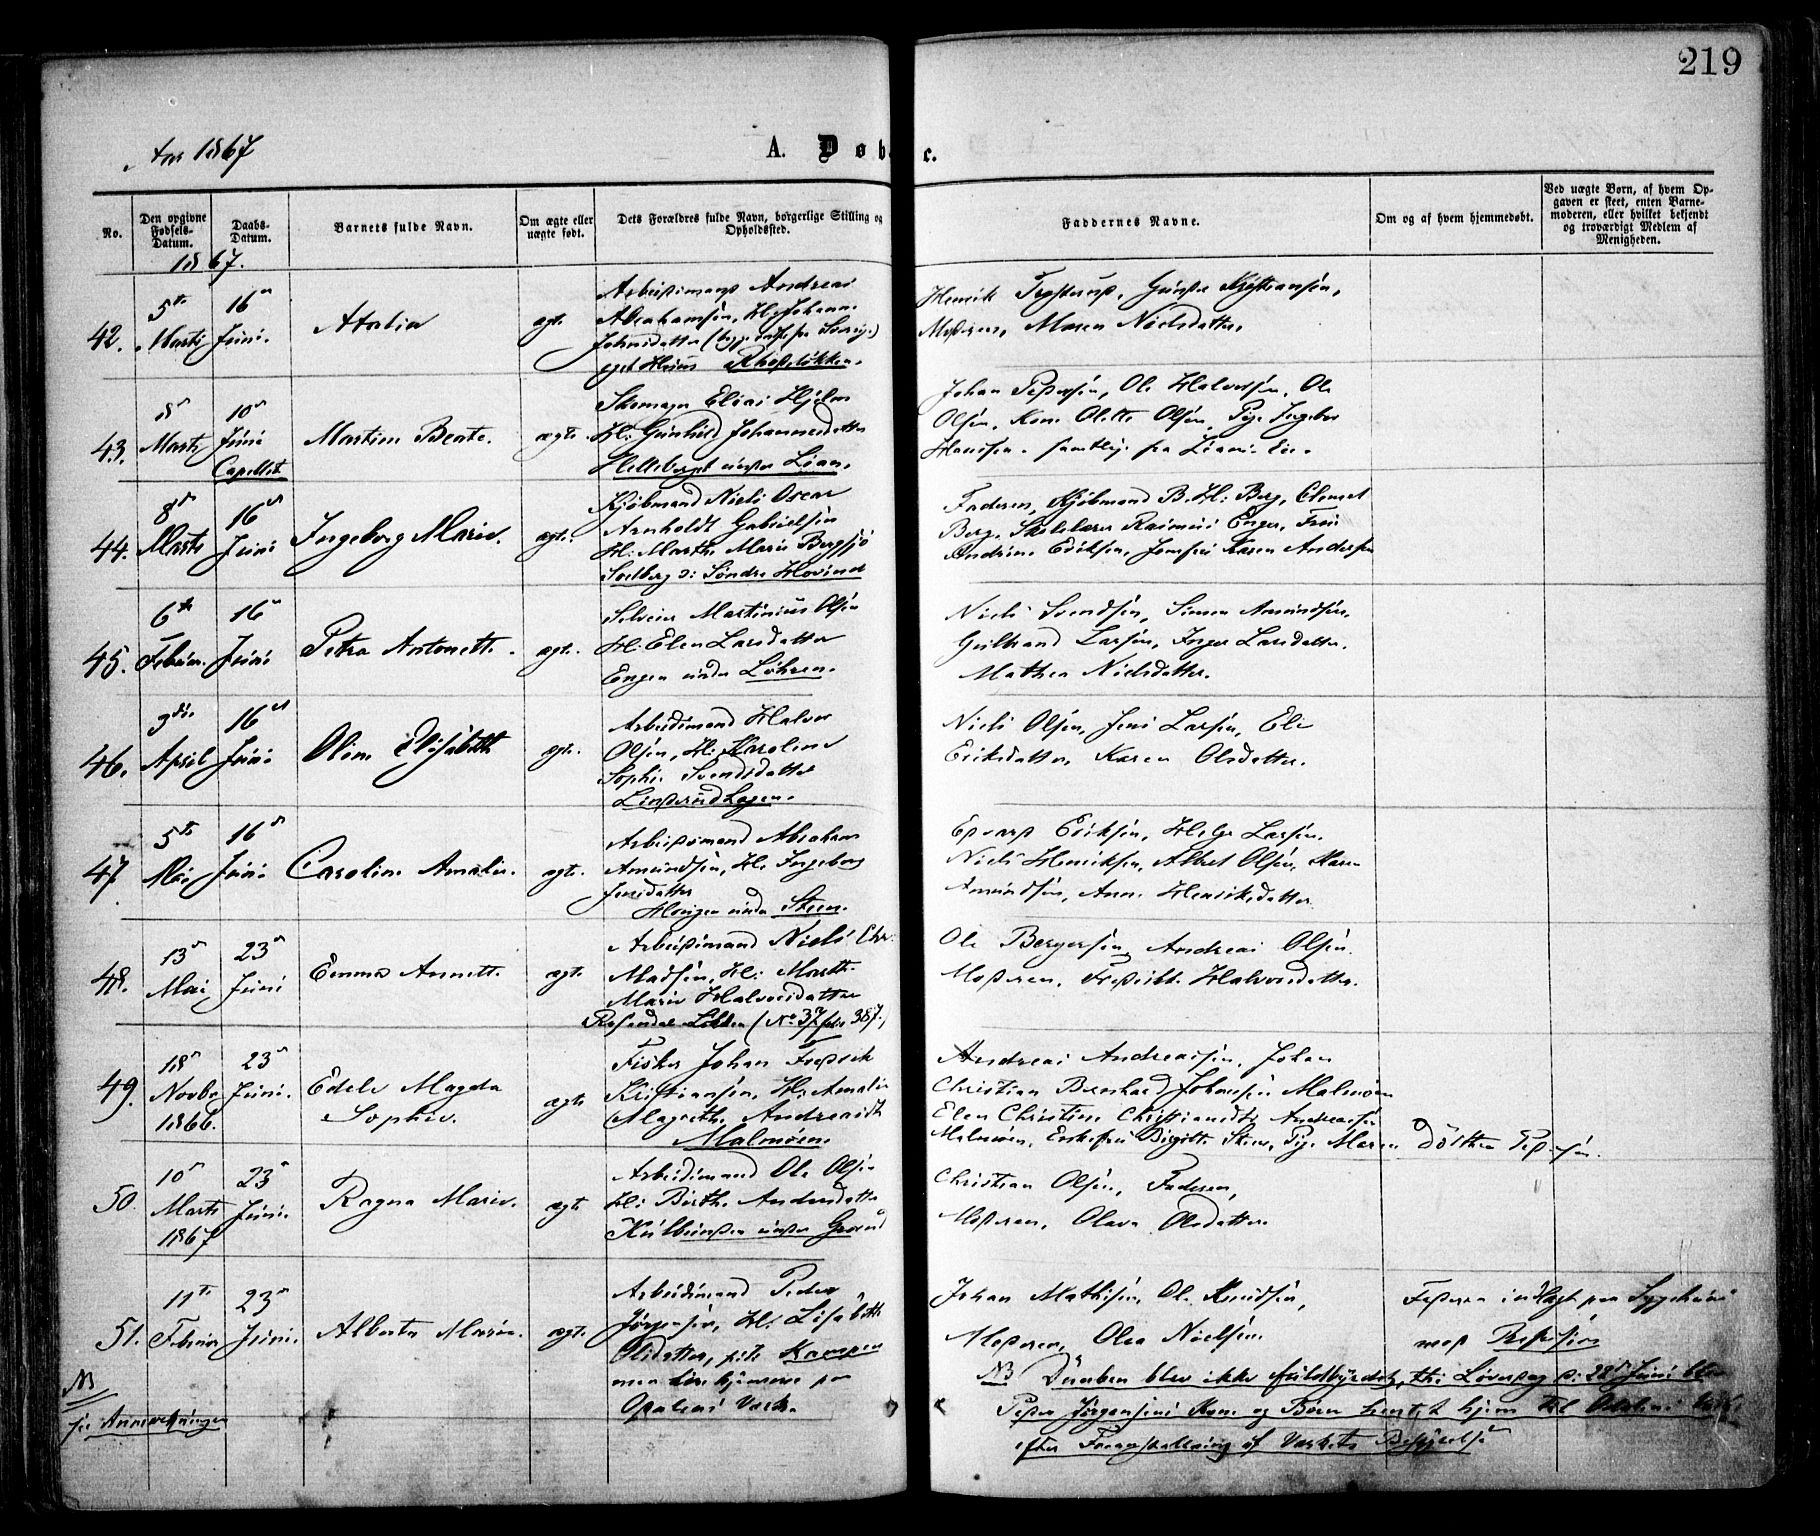 219
Aar 1867
A. Døbte.
No.
Den opgivne Fødsels-Datum.
Daabs-Datum.
Barnets fulde Navn.
Om ægte eller uægte født.
Dets Forældres fulde Navn, borgerlige Stilling og Opholdssted.
Faddernes Navne.
Om og af hvem hjemmedøbt.
Ved uægte Børn, af hvem Opgaven er skeet, enten Barnemoderen, eller hvilket bekjendt og troværdigt Medlem af Menigheden.
1867.
42.
5te Marts
16de Juni.
Atalia
ægt.
Arbeidsmand Andreas
Abrahamsen, H: Johanne
Johnsdatter
eget Huus
Henrik
Moderen, Maren Nielsdatter.
43.
8de Marts
10de Juni Capellet
Martine Beate.
ægt.
Skomager Elias Hjelm
H: Gunhild Johannesdatter
Hellebergt under Lian.
Johan Pedersen, Ole Halvorsen, Ole
Olsen, Kone Olette Olsen, Pige Ingebor
Hansen. samtlige fra Lians Eie.
44.
8de Marts
16de Juni
Ingeborg Marie.
ægt.
Kjøbmand Niels Oscar
Arnholdt Gabrielsen
H: Marthe Marie Bergsjø
Solberg d: Søndre Hovind
Faderen, Kjøbmand B. H: Berg, Clemet
Berg, Skolelærer Rasmus Enger, Fru
Andrine Eriksen, Jomfru Karen Andersen
45.
6te Februar.
16de Juni
Petra Antonette.
ægt.
Selveier Martinius Olsen
H: Elen Larsdatter
Engen under Løhren.
Niels Svendsen, Simen Amundsen,
Gulbrand Larsen, Inger Larsdatter.
Mathea Nielsdatter.
46.
3die April
16de Juni
Oline Elisabeth
ægt.
Arbeidsmand Halvor
Olsen, H: Karoline
Sophie Svendsdatter
Linderudhagen.
Niels Olsen, Jens Larsen, Eli
Eriksdatter, Karen Olsdatter.
47.
5te Mai
16de Juni
Caroline Amalie.
ægt.
Arbeidsmand Abraham
Amundsen, H: Ingeborg
Jensdatter
under Steen.
Edvard Eriksen, Helge Larsen.
Niels Henriksen, Albret Olsen, Karen
Amundsen, Anne Henriksdatter
48.
13de Mai
23de Juni
Emma Annette.
ægt.
Arbeidsmand Niels Chr.
Madsen, H: Marthe
Marie Halvorsdatter
Rosendal Løkken (No 37 folio 387.)
Ole Bergersen, Andreas Olsen.
Moderen, Fredrikke Halvorsdatter.
49.
18de Novbr 1866.
23de Juni.
Edele Magda
Sophie.
ægt
Fisker Johan Fredrik
Kristiansen, H: Amalie
Magrethe Andreasdt
Malmøen.
Andreas Andreassen, Johan
Christian Bernhard Johnsen Malmøen
Elen Christine Christiansdtr Andreassen
Malmøen, Enkefru Birgitte Steen, Pige Maren Dorthea Pedersen.
50.
10de Marts 1867
23de Juni.
Ragna Marie.
ægt
Arbeidsmand Ole Olsen
H: Birthe Andersdatter
under Grorud
Christian Olsen, Faderen,
Moderen, Olava Olsdatter.
51.
11te Februar
23de Juni.
Alberta Marie.
ægt.
Arbeidsmand Peder
Jørgensen, H: Lisabeth
Olsdatter, sidst Kampen
men hjemme paa
Opalens Værk.
Johan Mathisen, Ole Knudsen,
Moderen, Olea Nielsen.
Faderen indlagt paa Sygehuus
med
NB
see Anmerkningen
NB Daaben blev ikke fuldbyrdet, thi Løverdag d: 22de Juni blev
Peder Jørgensens Kone og Børn hentet hjem til
efter Foranstaltning af Værkets Bestyrelse